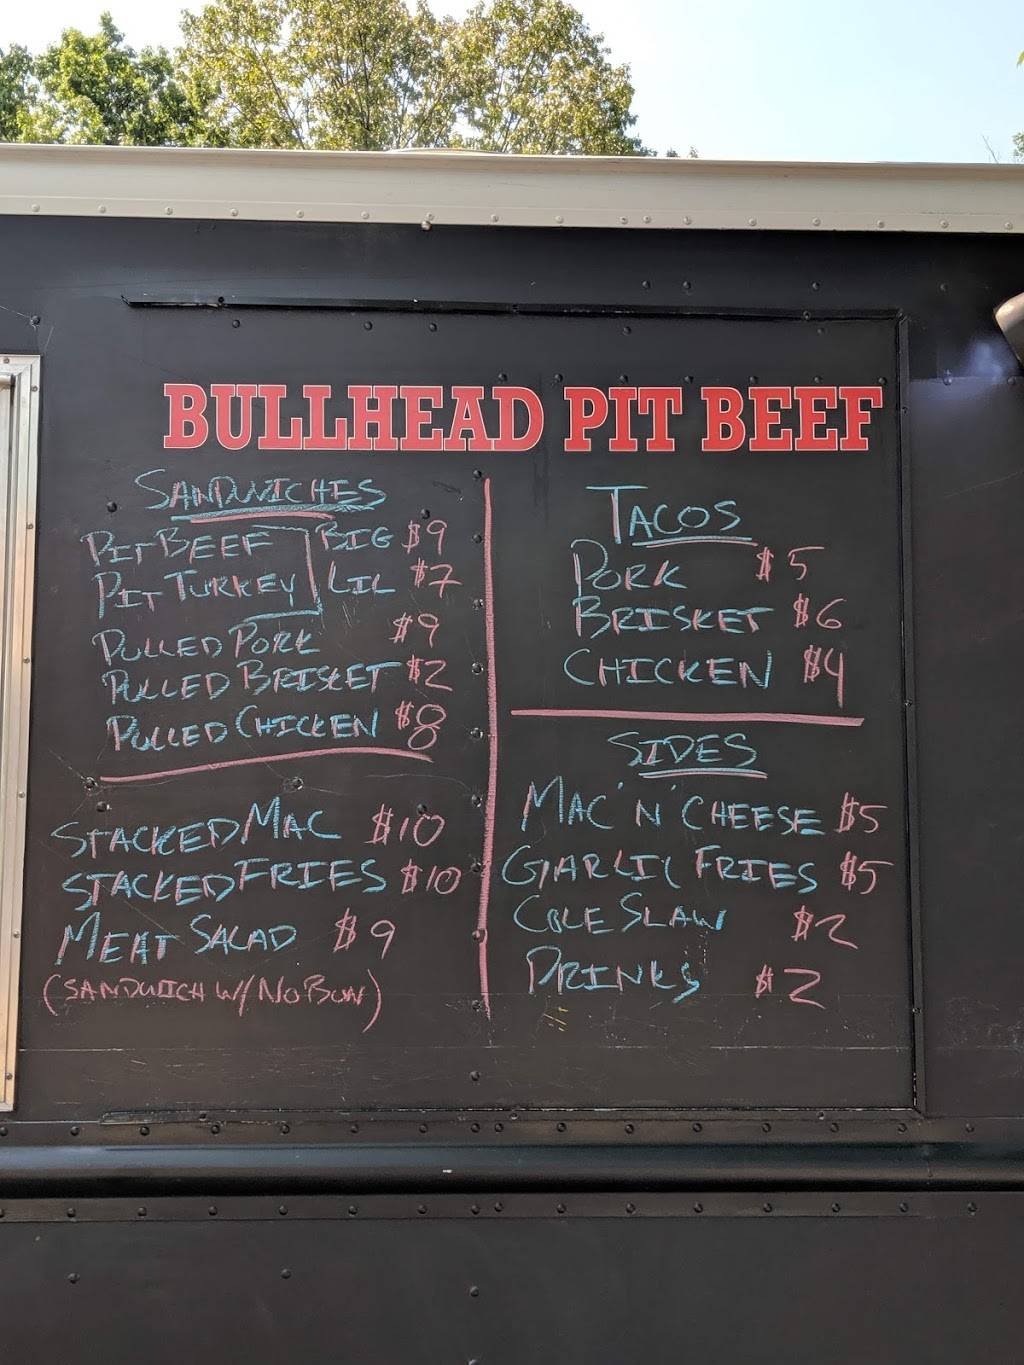 BULLHEAD PIT BEEF
SANDWICHES
PIT BEEF BIG $9
PIT TURKEY LIL $7
PULLED PORK $9
PULLED BRISKET $2
PULLED CHICKEN $8
STACKED MAC $10
STACKED FRIES $10
MEAT SALAD $9
(SANDWICH W/ NO BUN)
TACOS
PORK $5
BRISKET $6
CHICKEN $4
SIDES
MAC 'N' CHEESE $5
GARLIC FRIES $5
COLE SLAW $2
DRINKS $2